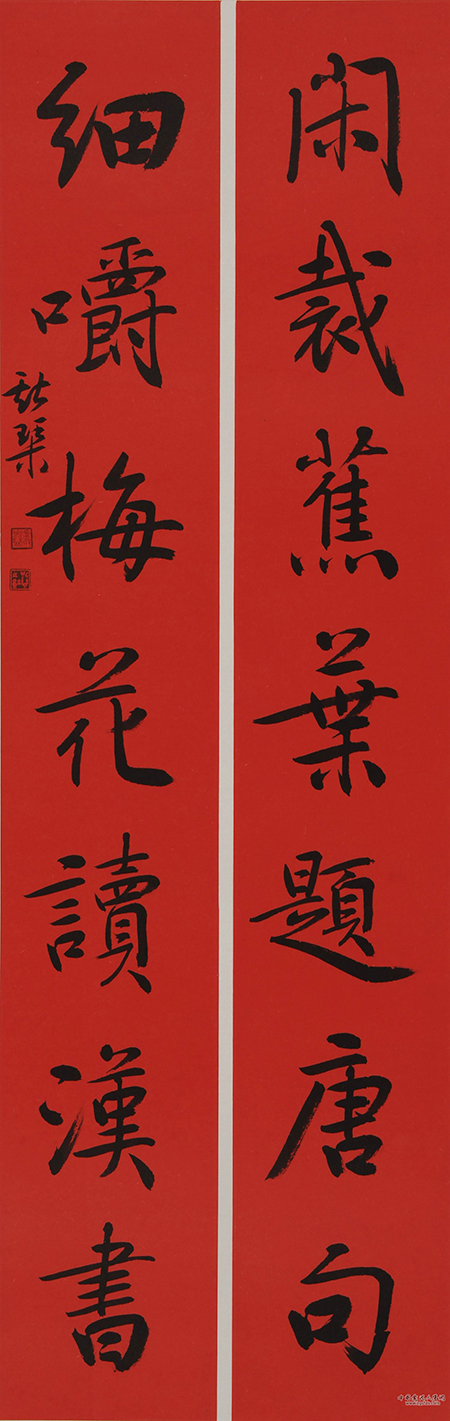 閑裁蕉葉題唐句
細嚼梅花讀漢書